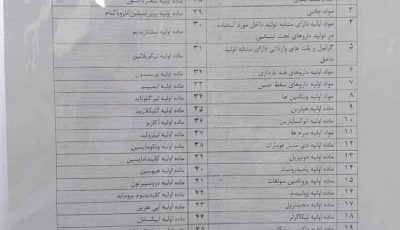 ۳ مواد جانبی
۴ مواد اولیه دارای مشابه تولید داخل مورد استفاده در تولید داروهای تحت لیسانس
۵ گرانول و پلت های وارداتی دارای مشابه تولید داخل
۶ مواد اولیه داروهای ضد بارداری
۷ مواد اولیه داروهای سقط جنین
۸ مواد اولیه ویتامین ها
۹ ماده اولیه هپارین
۱۰ ماده اولیه انوکساپارین
۱۱ مواد اولیه سرم ها
۱۲ ماده اولیه دی متیل فومارات
۱۳ ماده اولیه دونپزیل
۱۴ ماده اولیه پامیدرونیت
۱۵ ماده اولیه پروتامین سولفات
۱۶ ماده اولیه زولپیدم
۱۷ ماده اولیه مجسترول
۱۸ ماده اولیه تیکاگرلر
۱۹
۲۹ ماده اولیه پیپراسیلین تازوباکتام
۳۰ ماده اولیه سفتازیدیم
۳۱ ماده اولیه تیکوپلانین
۳۲ ماده اولیه پریمیدون
۳۳ ماده اولیه ایمیپنم
۳۴ ماده اولیه
۳۵ ماده اولیه گلیکلازید
۳۶ ماده اولیه آکاربز
۳۷ ماده اولیه لینزولید
۳۸ ماده اولیه ونکومایسین
۳۹ ماده اولیه کلیندامایسین
۴۰ ماده اولیه هیوسین
۴۱ ماده اولیه دروسپیرنون
۴۲ ماده اولیه کلیدینیوم بروماید
۴۳ ماده اولیه اپی نفرین
۴۴ ماده اولیه